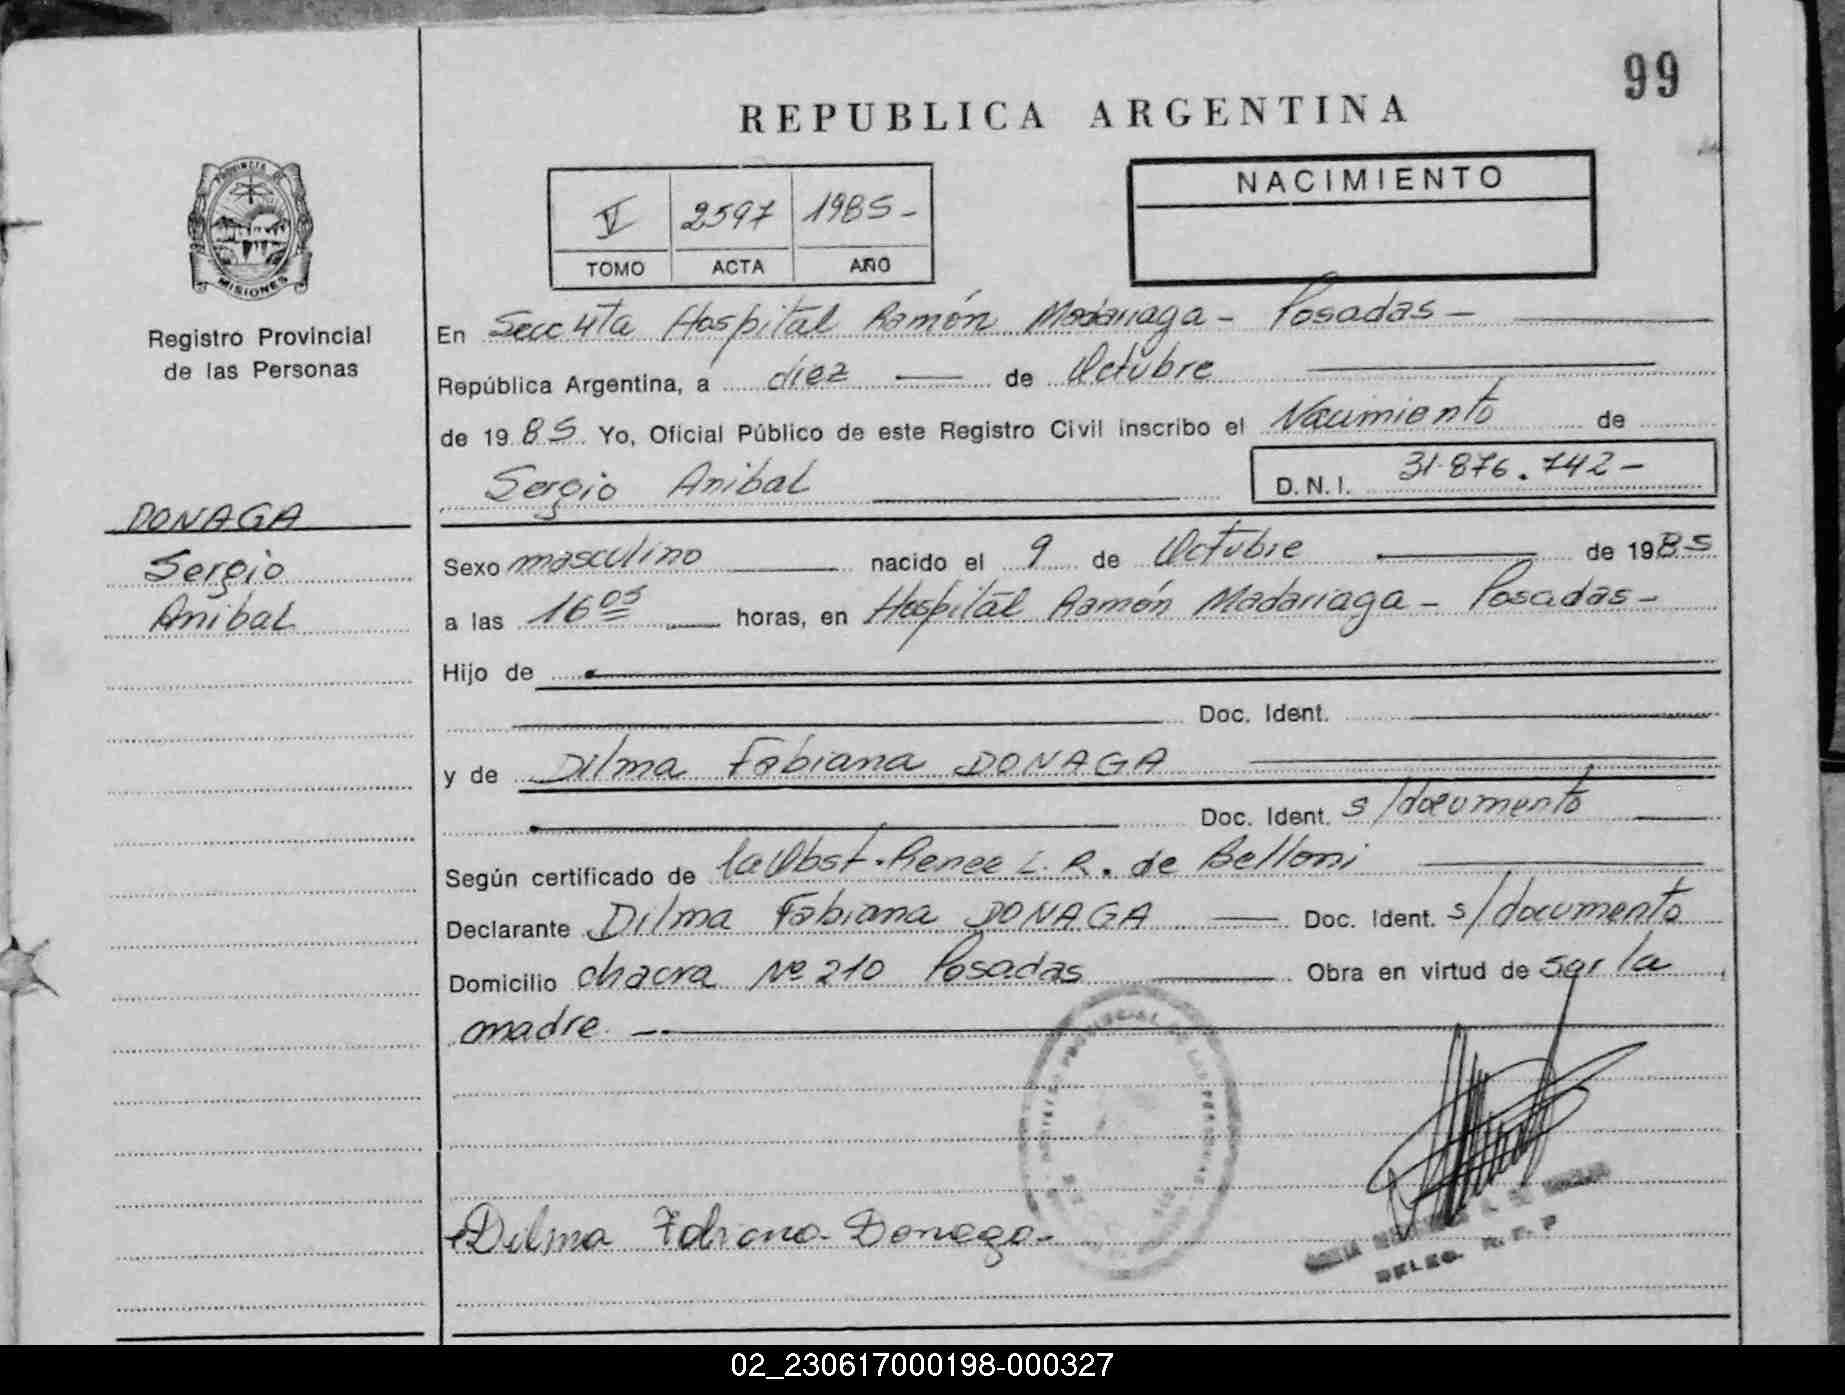 99
REPUBLICA ARGENTINA
PROVINCIA DE
MISIONES
Registro Provincial
de las Personas
V 2597 1985-
TOMO ACTA AÑO
NACIMIENTO
En Secc 4ta Hospital Ramón Madariaga - Posadas -
República Argentina, a diez de Octubre
de 1985. Yo, Oficial Público de este Registro Civil inscribo el Nacimiento de
Sergio Anibal
D.N.I. 31.876.742-
DONAGA
Sergio
Anibal
Sexo masculino nacido el 9 de Octubre de 1985
a las 16 05 horas, en Hospital Ramón Madariaga - Posadas -
Hijo de
Doc. Ident.
y de Dilma Fabiana DONAGA
Doc. Ident. s/documento
Según certificado de la Obst. Renee L. R. de Belloni
Declarante Dilma Fabiana DONAGA Doc. Ident. s/documento
Domicilio chacra Nº 210 Posadas Obra en virtud de ser la
madre.
Dilma Fabiana Donaga
DELEG. R. P. P
02_230617000198-000327